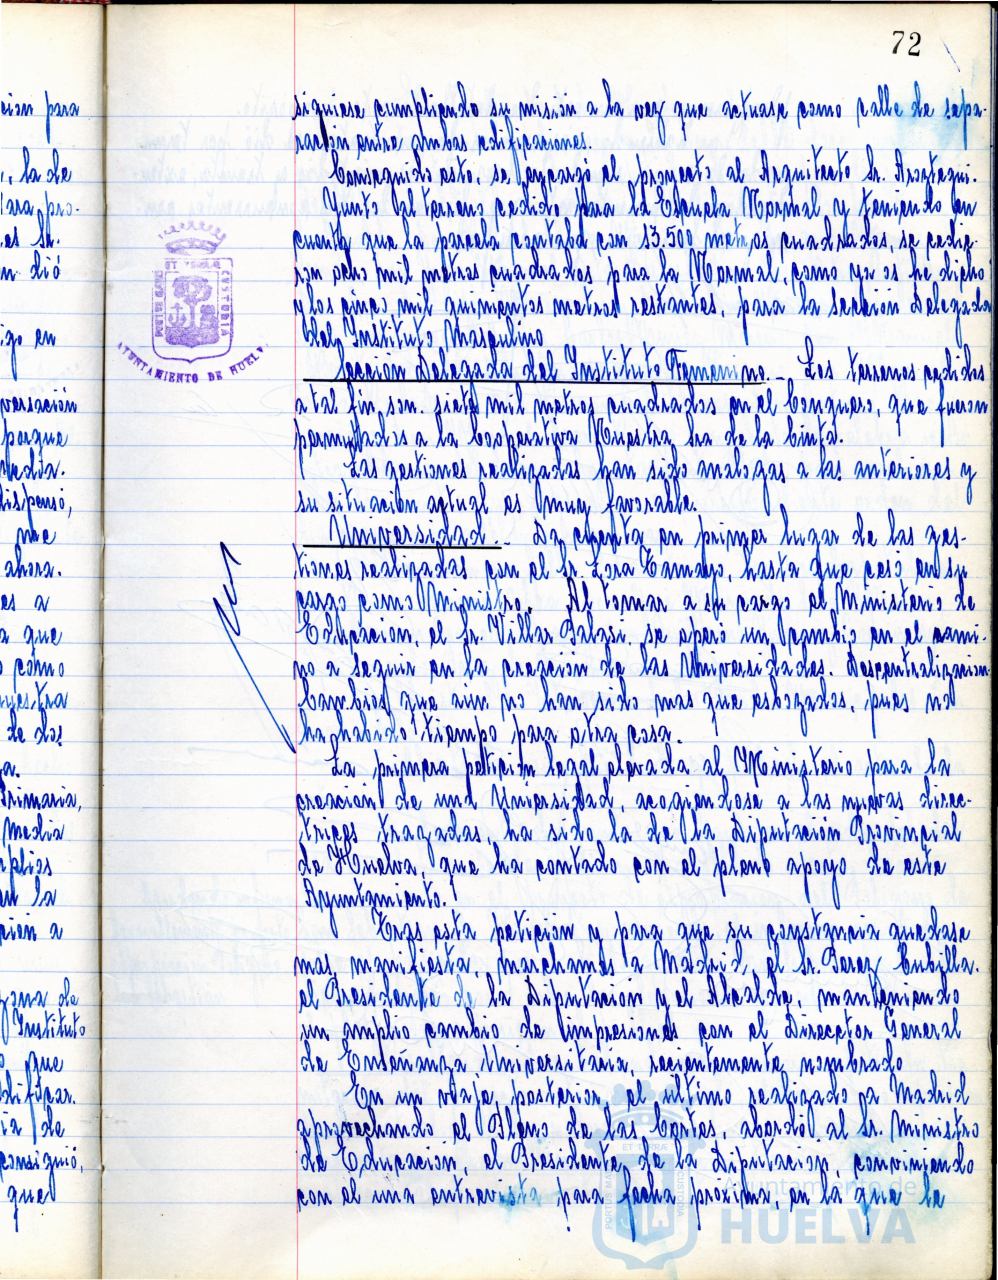 72
siguiese cumpliendo su misión a la vez que actuase como calle de sepa-
ración entre ambas edificaciones.
Conseguido esto, se encargó el proyecto al Arquitecto Sr. Aroztegui.
Junto al terreno cedido para la Escuela Normal y teniendo en
cuenta que la parcela contaba con 13.500 metros cuadrados, se cedie-
ron ocho mil metros cuadrados para la Normal, como ya os he dicho
y los cinco mil quinientos metros restantes, para la Sección Delegada
del Instituto Masculino
Sección Delegada del Instituto Femenino.- Los terrenos cedidos
a tal fin, son. siete mil metros cuadrados en el Conquero, que fueron
permutados a la Cooperativa Nuestra Sra de la Cinta.
Las gestiones realizadas han sido analogas a las anteriores y
su situación actual es muy favorable.
Universidad.- Da cuenta en primer lugar de las ges-
tiones realizadas con el Sr. Lora Tamayo, hasta que cesó en su
cargo como Ministro. Al tomar a su cargo el Ministerio de
Educación, el Sr. Villar Palasi, se operó un cambio en el cami-
no a seguir en la creación de las Universidades. Descentralización.
Cambios que aún no han sido mas que esbozados, pues no
ha habido tiempo para otra cosa.
La primera petición legal elevada al Ministerio para la
creación de una Universidad, acogiendose a las nuevas direc-
trices trazadas, ha sido la de la Diputación Provincial
de Huelva, que ha contado con el pleno apoyo de este
Ayuntamiento.
Tras esta petición y para que su constancia quedase
mas manifiesta, marchamos a Madrid, el Sr. Perez Cubilla.
el Presidente de la Diputación y el Alcalde, manteniendo
un amplio cambio de impresiones con el Director General
de Enseñanza Universitaria, recientemente nombrado
En un viaje, posterior, el último realizado a Madrid
aprovechando el Pleno de las Cortes, abordó al Sr. Ministro
de Educación, el Presidente de la Diputación, conviniendo
con el una entrevista para fecha proxima, en la que le
cion para
la de
para pro-
es Sr.
n dió
go en
versación
porque
Media.
dispensó,
me
ahora.
es a
a que
o como
nuestra
de dos
a.
Primaria,
Media
mplios
en la
cion a
zona de
Instituto
o que
edificar.
ia de
consiguió,
que
AYUNTAMIENTO DE HUELVA
PORTUS MARIS ET TERRÆ CUSTODIA
Ayuntamiento de
HUELVA